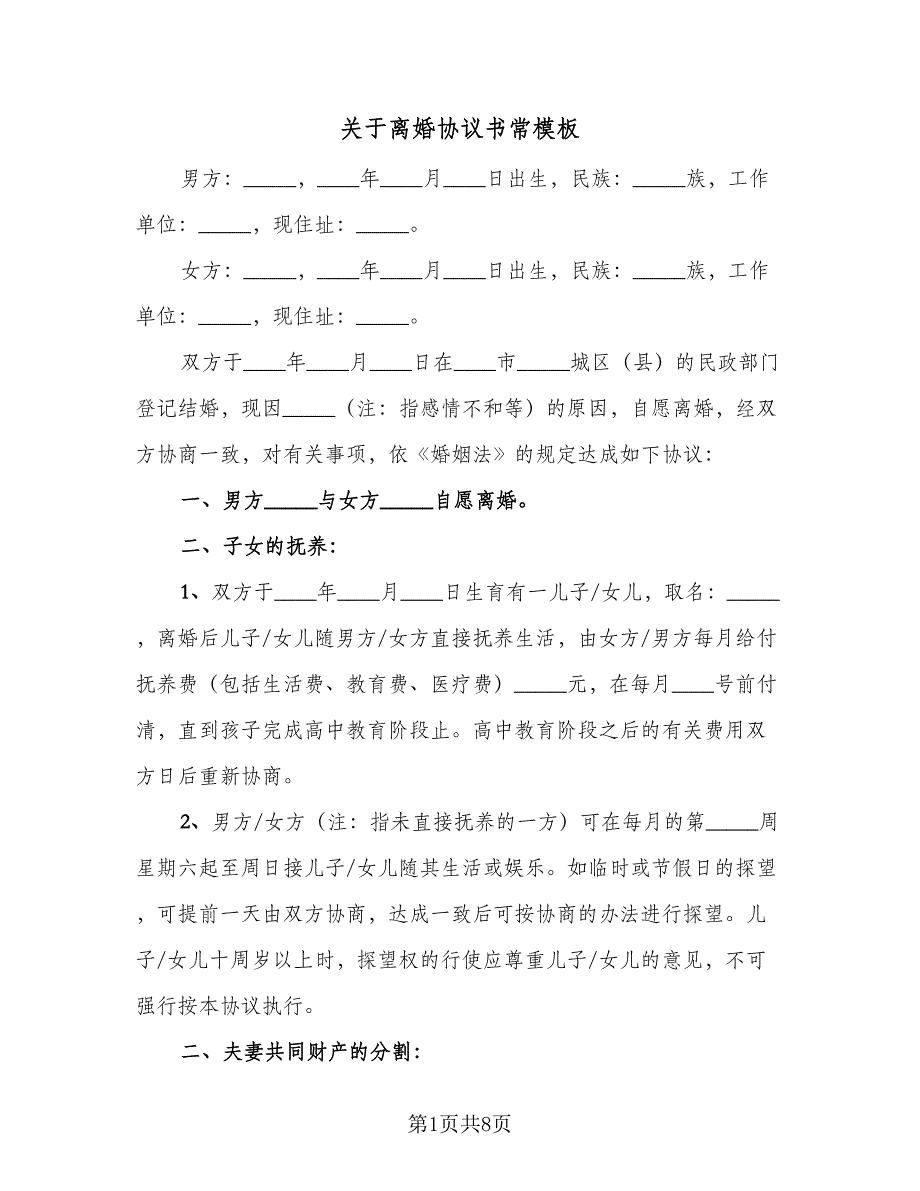 关于离婚协议书常模板
男方：_____，____年____月____日出生，民族：_____族，工作
单位：_____，现住址：_____。
女方：_____，____年____月____日出生，民族：_____族，工作
单位：_____，现住址：_____。
双方于____年____月____日在____市_____城区（县）的民政部门
登记结婚，现因_____（注：指感情不和等）的原因，自愿离婚，经双
方协商一致，对有关事项，依《婚姻法》的规定达成如下协议：
一、男方_____与女方_____自愿离婚。
二、子女的抚养：
1、双方于____年____月____日生育有一儿子/女儿，取名：_____
，离婚后儿子/女儿随男方/女方直接抚养生活，由女方/男方每月给付
抚养费（包括生活费、教育费、医疗费）_____元，在每月____号前付
清，直到孩子完成高中教育阶段止。高中教育阶段之后的有关费用双
方日后重新协商。
2、男方/女方（注：指未直接抚养的一方）可在每月的第_____周
星期六起至周日接儿子/女儿随其生活或娱乐。如临时或节假日的探望
，可提前一天由双方协商，达成一致后可按协商的办法进行探望。儿
子/女儿十周岁以上时，探望权的行使应尊重儿子/女儿的意见，不可
强行按本协议执行。
二、夫妻共同财产的分割：
第1页共8页